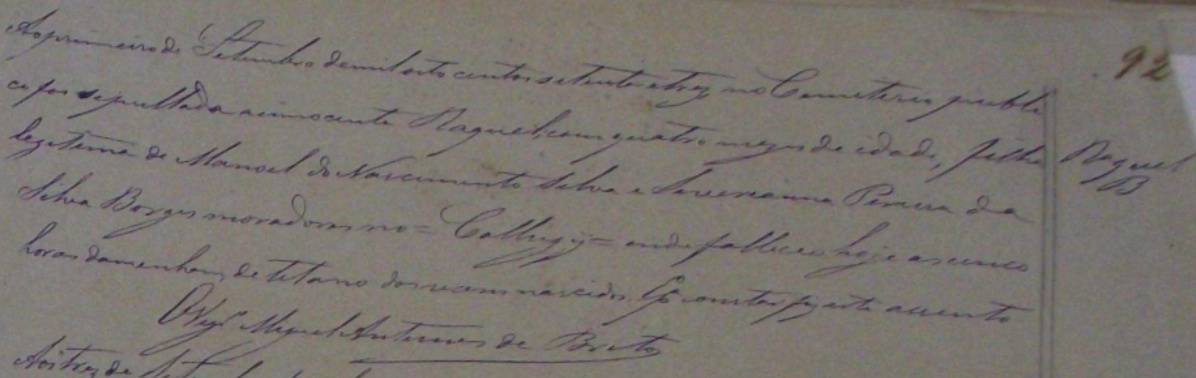 92
Ao primeiro de Setembro de mil oito centos setenta e trez no Cemeterio publi
co foi sepultada a innocente Raquel, com quatro mezes de idade, filha
Raquel
B
legitima de Manoel do Nascimento Silva e Severianna Pereira da
Silva Borges moradores no = = onde falleceo hoje as cinco
horas da menham, de tetano dos recem nascidos. E p.ª constar fiz este assento
O Vigr.º Miguel Antunes de Brito
Aos tres de